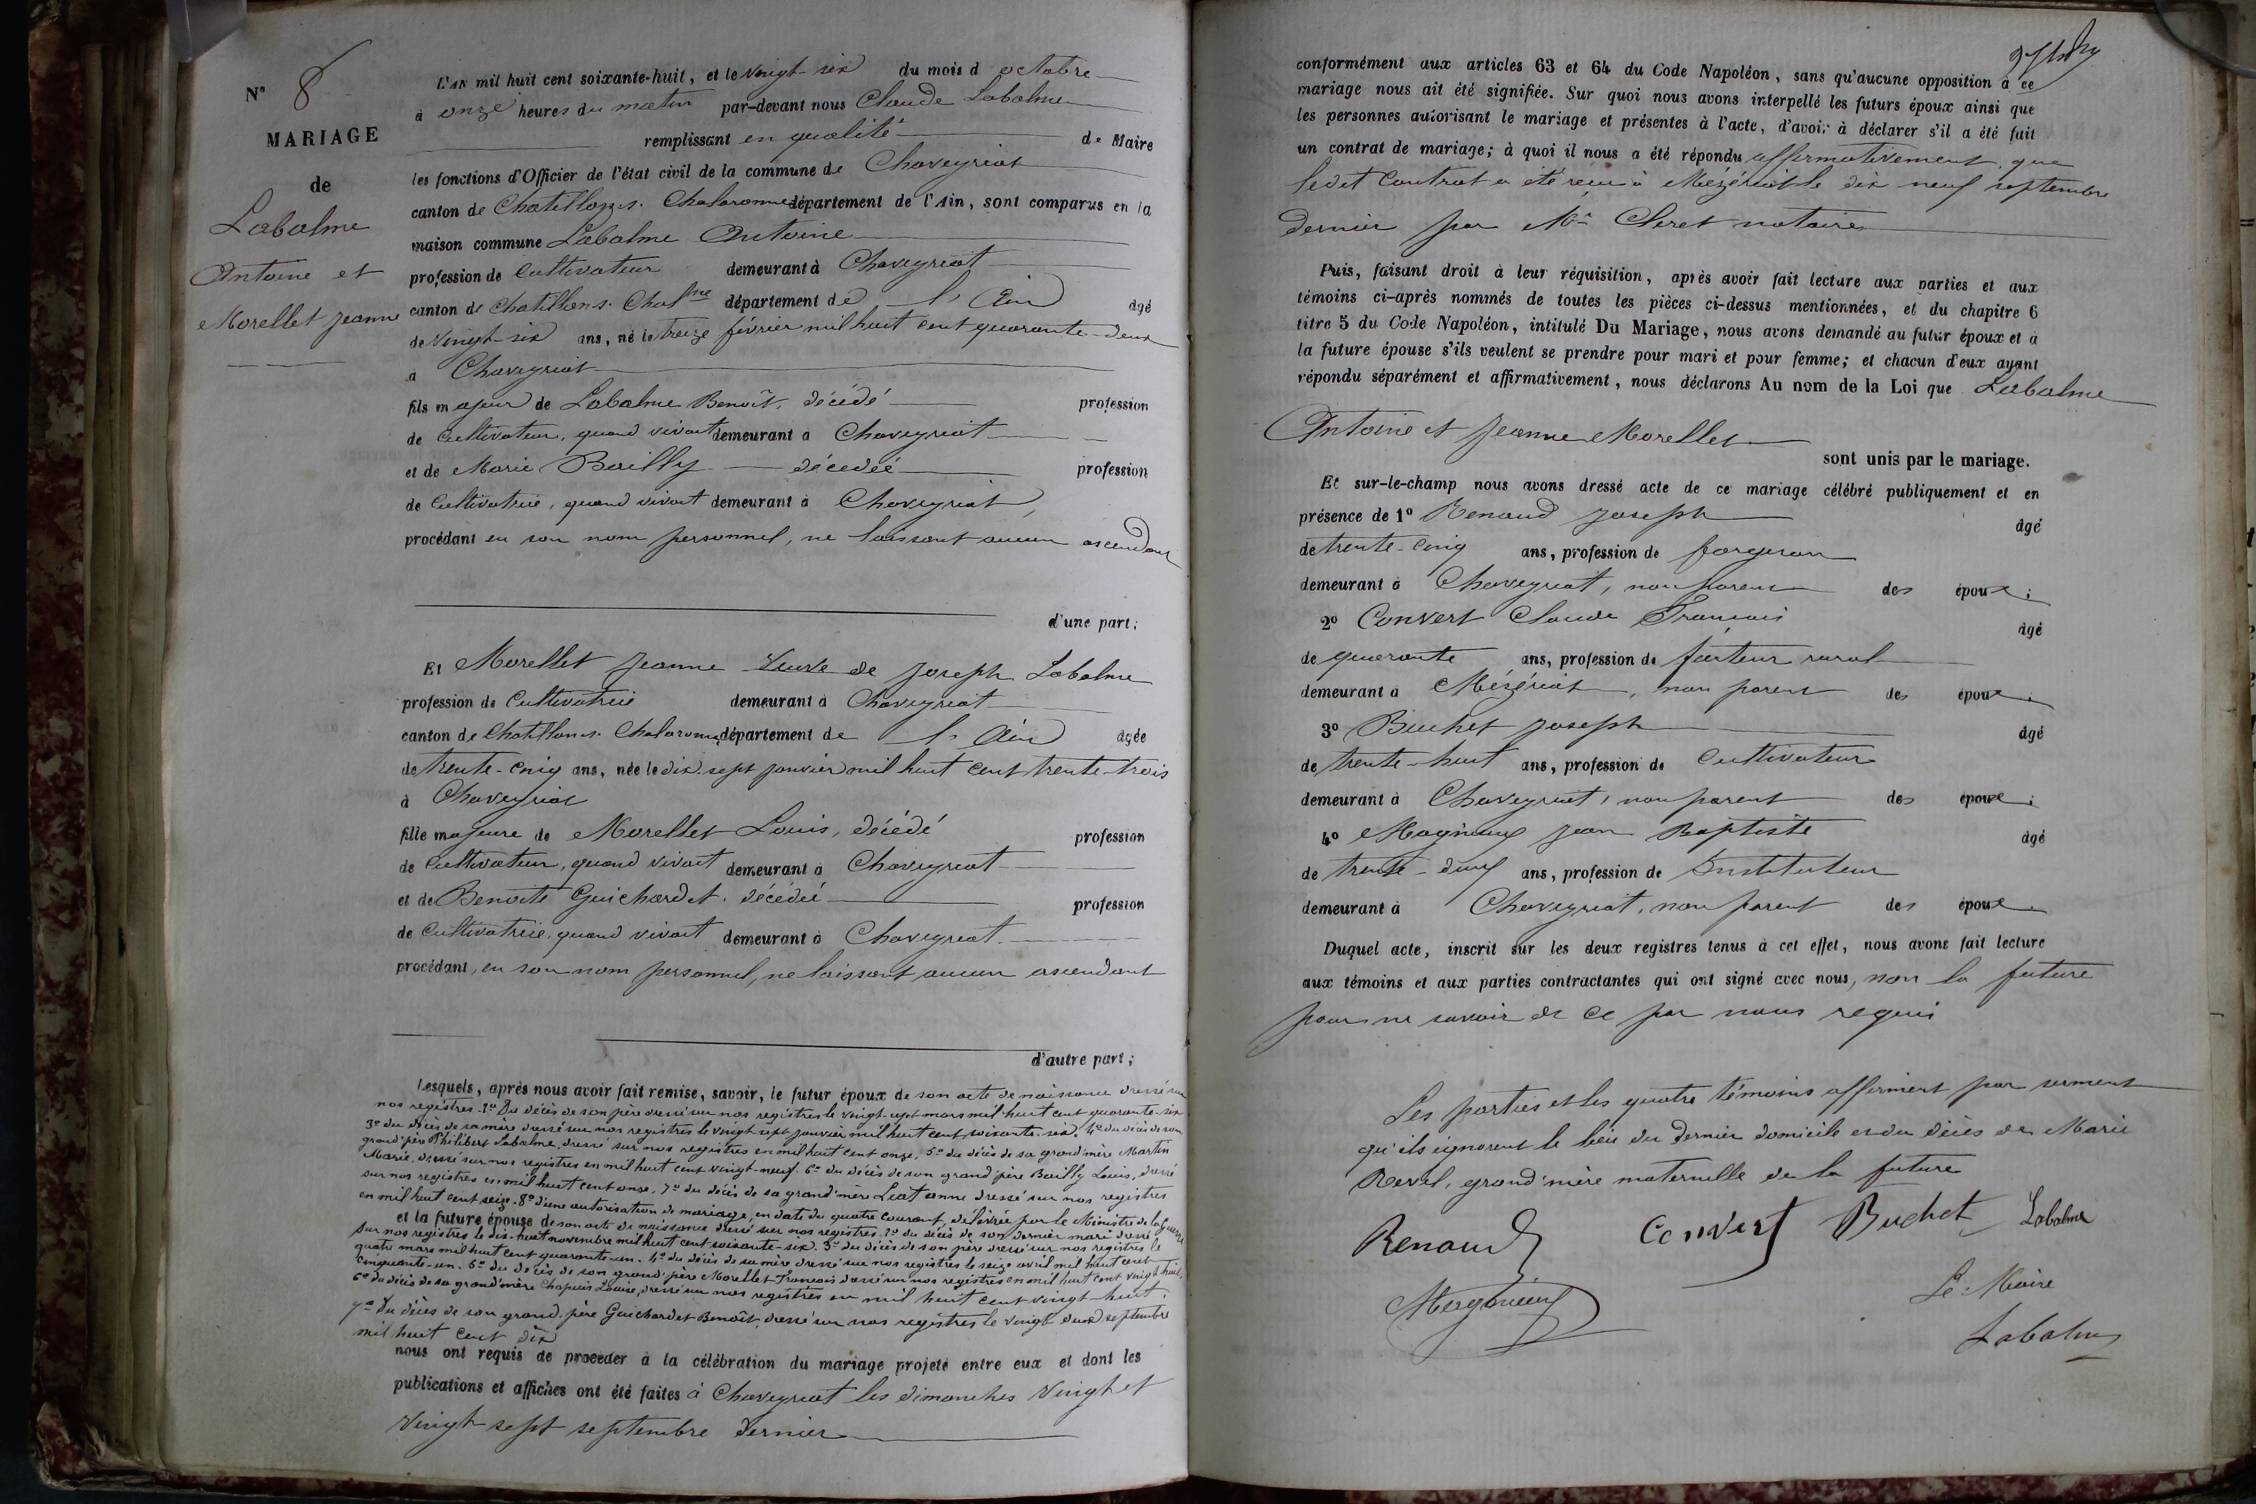 N° 8
MARIAGE
de
Labalme
Antoine et
Morellet Jeanne
L'AN mil huit cent soixante-huit, et le vingt-six du mois d octobre
à onze heures du matin par-devant nous Claude Labalme
remplissant en qualité de Maire
les fonctions d'Officier de l'état civil de la commune de Chaveyriat
canton de Chatillon s. Chalaronne département de l'Ain, sont comparus en la
maison commune Labalme Antoine
profession de cultivateur demeurant à Chaveyriat
canton de Chatillon s. Chalne département de l'Ain âgé
de vingt-six ans, né le treize février mil huit cent quarante-deux
à Chaveyriat
fils majeur de Labalme Benoît, décédé profession
de cultivateur, quand vivait demeurant à Chaveyriat
et de Marie Bailly décédée profession
de cultivatrice, quand vivait demeurant à Chaveyriat,
procédant en son nom personnel, ne laissant aucun ascendant
d'une part;
Et Morellet Jeanne veuve de Joseph Labalme
profession de cultivatrice demeurant à Chaveyriat
canton de Chatillon s. Chalaronne département de l'Ain âgée
de trente-cinq ans, née le dix-sept janvier mil huit cent trente-trois
à Chaveyriat
fille majeure de Morellet Louis, décédé profession
de cultivateur, quand vivait demeurant à Chaveyriat
et de Benoite Guichardet, décédée profession
de cultivatrice, quand vivait demeurant à Chaveyriat
procédant, en son nom personnel, ne laissant aucun ascendant
d'autre part;
Lesquels, après nous avoir fait remise, savoir, le futur époux de son acte de naissance dressé sur
nos registres. Du décès de son père dressé sur nos registres le vingt-sept mars mil huit cent quarante-six
3° du décès de sa mère dressé sur nos registres le vingt-sept janvier mil huit cent soixante-six. 4° du décès de son
grand'père Philibert Labalme, dressé sur nos registres en mil huit cent onze, 5° du décès de sa grand'mère Martin
Marie, dressé sur nos registres en mil huit cent vingt-neuf. 6° du décès de son grand'père Bailly Louis, dressé
sur nos registres en mil huit cent onze, 7° du décès de sa grand'mère Léat anne dressé sur nos registres
en mil huit cent seize. 8° d'une autorisation de mariage, en date du quatre courant, délivrée par le Ministre de la Guerre
et la future épouse de son acte de naissance dressé sur nos registres. 2° du décès de son dernier mari dressé
sur nos registres le dix-huit novembre mil huit cent soixante-six. 3° du décès de son père dressé sur nos registres le
quatre mars mil huit cent quarante-un. 4° du décès de sa mère dressé sur nos registres le seize avril mil huit cent
cinquante-un. 5° du décès de son grand'père Morellet François dressé sur nos registres en mil huit cent vingt-huit,
6° du décès de sa grand'mère Chapuis Louise, dressé sur nos registres en mil huit cent vingt-huit,
7° du décès de son grand'père Guichardet Benoît, dressé sur nos registres le vingt-deux septembre
mil huit cent dix
nous ont requis de procéder à la célébration du mariage projeté entre eux et dont les
publications et affiches ont été faites à Chaveyriat les dimanches vingt et
vingt sept septembre dernier
conformément aux articles 63 et 64 du Code Napoléon, sans qu'aucune opposition à ce
mariage nous ait été signifiée. Sur quoi nous avons interpellé les futurs époux ainsi que
les personnes autorisant le mariage et présentes à l'acte, d'avoir à déclarer s'il a été fait
un contrat de mariage; à quoi il nous a été répondu affirmativement, que
ledit contrat a été reçu à Mézériat le dix neuf septembre
dernier par Me notaire
Puis, faisant droit à leur réquisition, après avoir fait lecture aux parties et aux
témoins ci-après nommés de toutes les pièces ci-dessus mentionnées, et du chapitre 6
titre 5 du Code Napoléon, intitulé Du Mariage, nous avons demandé au futur époux et à
la future épouse s'ils veulent se prendre pour mari et pour femme; et chacun d'eux ayant
répondu séparément et affirmativement, nous déclarons Au nom de la Loi que Labalme
Antoine et Jeanne Morellet
sont unis par le mariage.
Et sur-le-champ nous avons dressé acte de ce mariage célébré publiquement et en
présence de 1° Renaud Joseph âgé
de trente-cinq ans, profession de forgeron
demeurant à Chaveyriat, non parent des époux;
2° Convert Claude François âgé
de quarante ans, profession de facteur rural
demeurant à Mézériat, non parent des époux;
3° Buchet Joseph âgé
de trente-huit ans, profession de cultivateur
demeurant à Chaveyriat, non parent des époux;
4° Jean Baptiste âgé
de trente-deux ans, profession de Instituteur
demeurant à Chaveyriat, non parent des époux
Duquel acte, inscrit sur les deux registres tenus à cet effet, nous avons fait lecture
aux témoins et aux parties contractantes qui ont signé avec nous, non la future
pour ne savoir de ce par nous requis
Les parties et les quatre témoins afferment par serment
qu'ils ignorent le lieu du dernier domicile et du décès de Marie
grand'mère maternelle de la future
Renaud Convert Buchet Labalme
Le Maire
Labalme